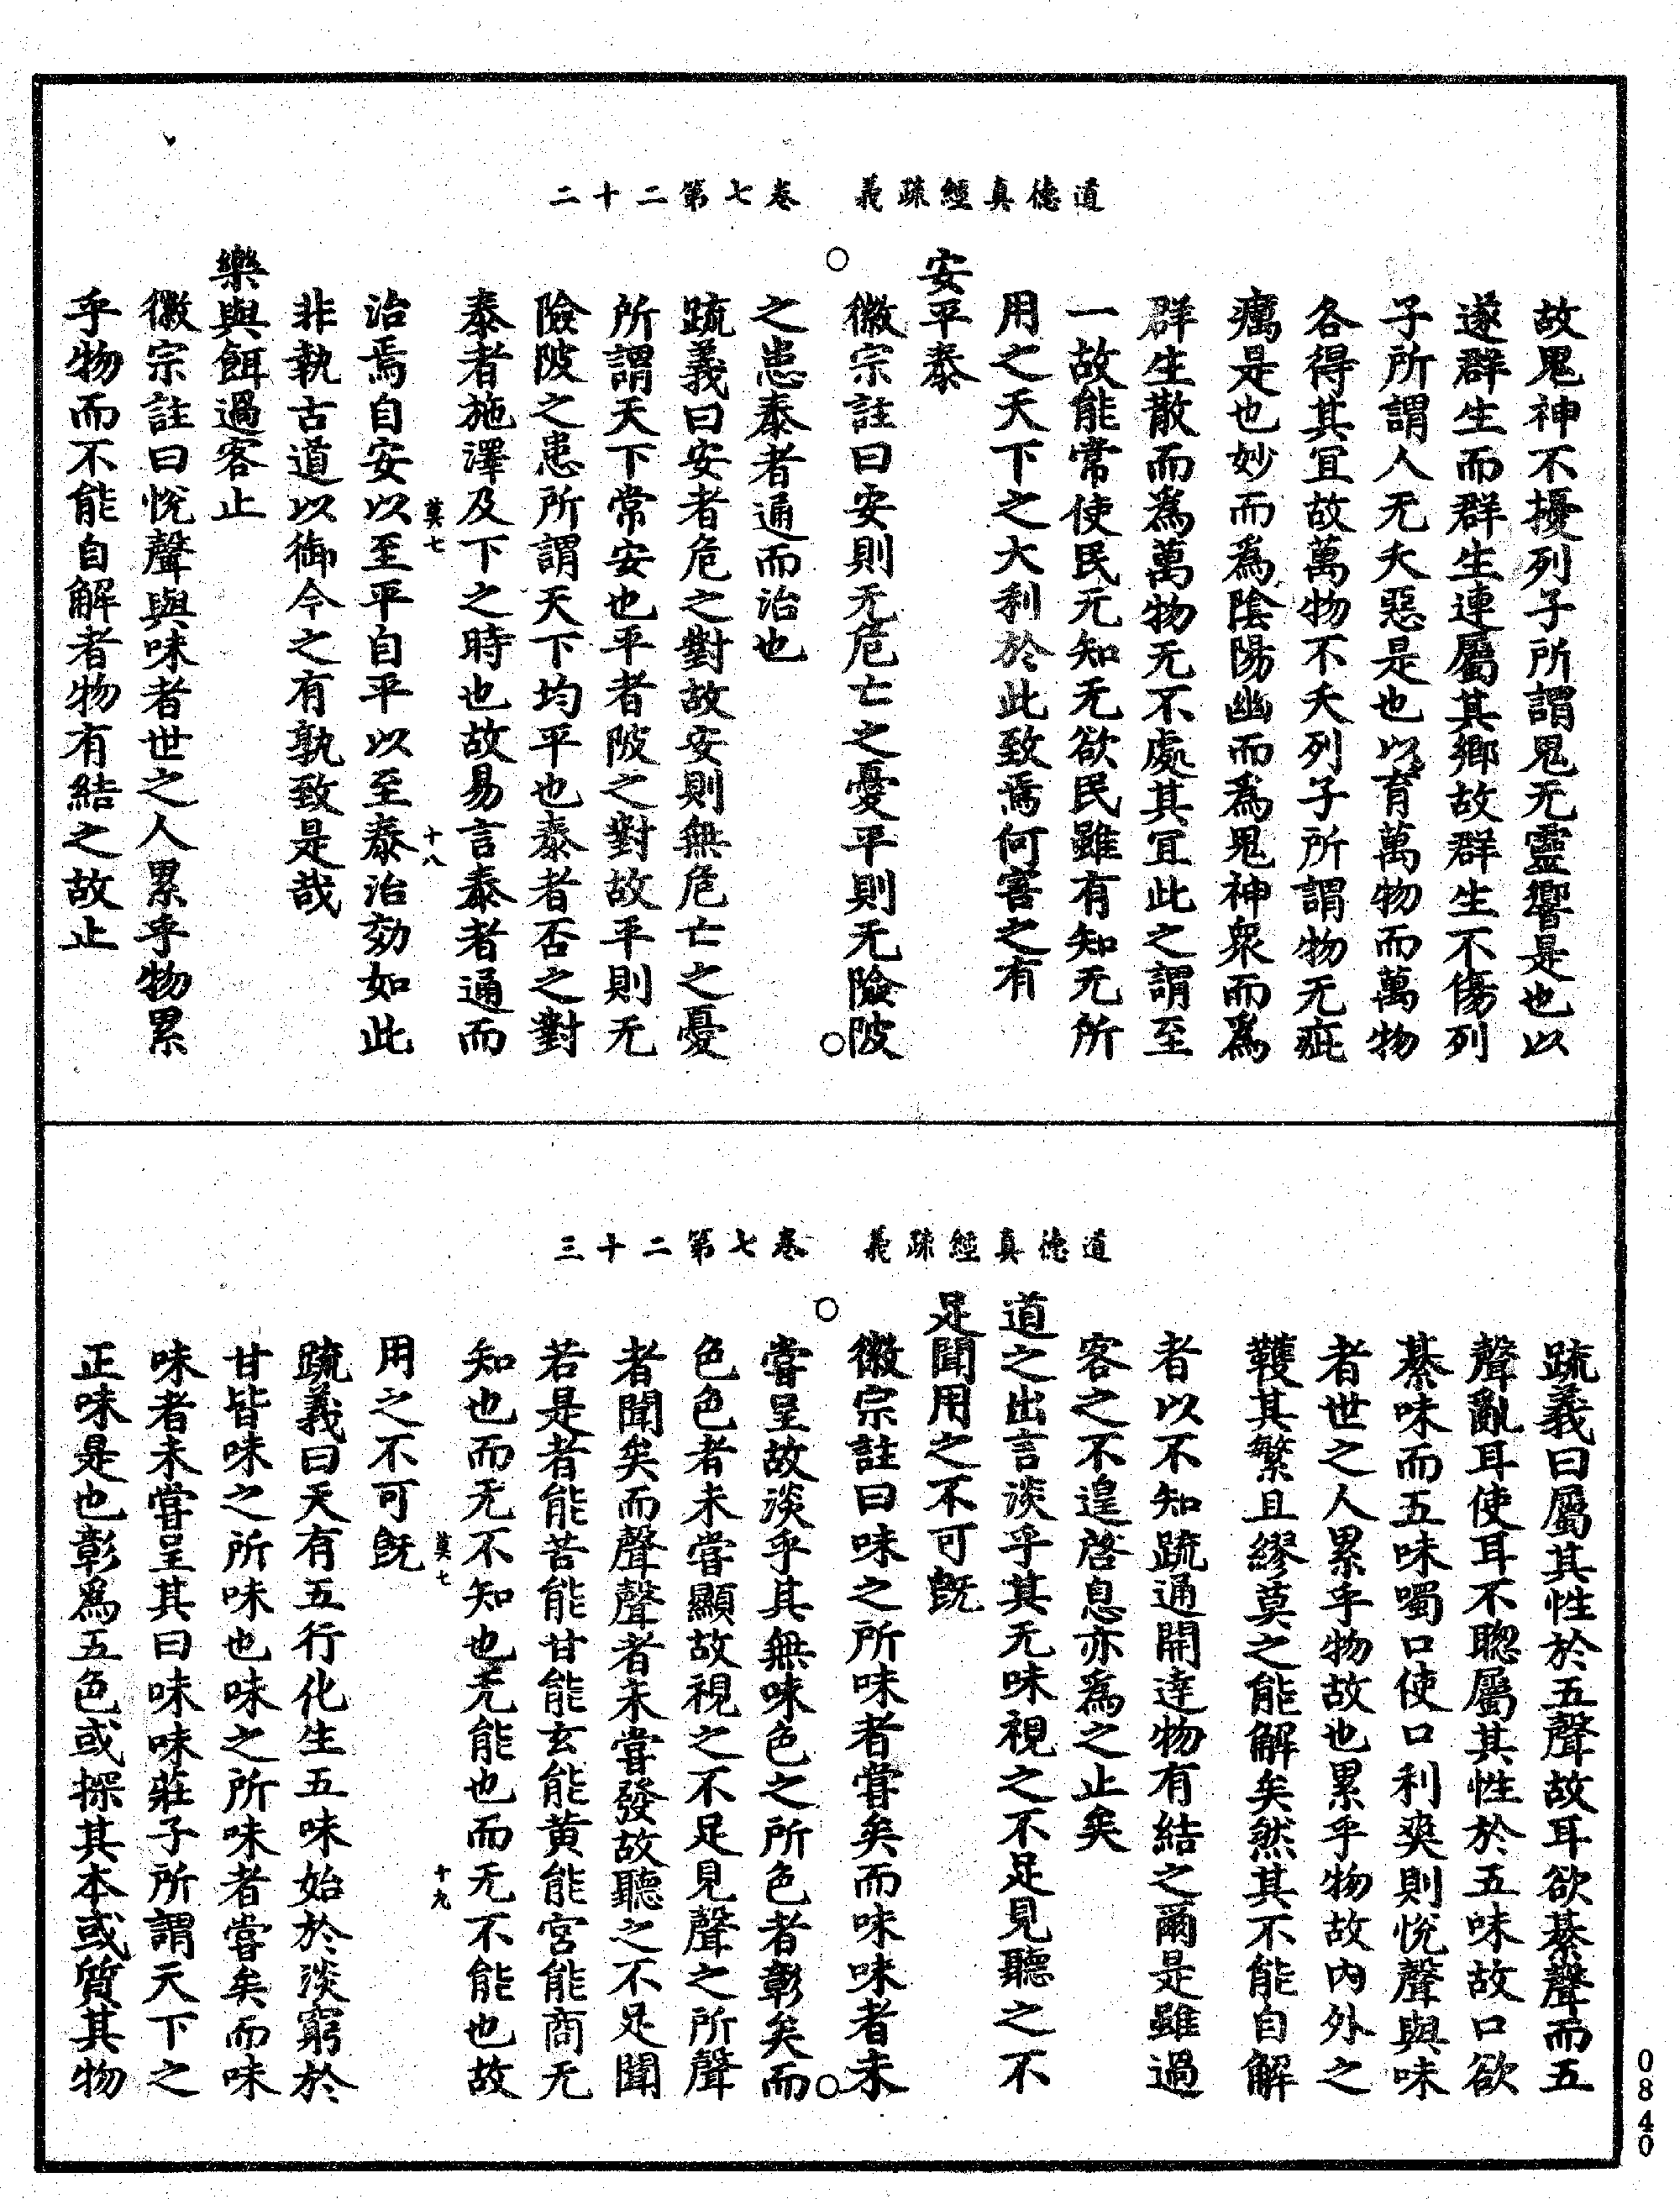 道德真經疏義　卷七第二十二
故鬼神不擾列子所謂鬼无靈響是也以
遂群生而群生連屬其鄉故群生不傷列
子所謂人无夭惡是也以育萬物而萬物
各得其冝故萬物不夭列子所謂物无疵
癘是也妙而為陰陽幽而為鬼神衆而為
群生散而為萬物无不處其冝此之謂至
一故能常使民无知无欲民雖有知无所
用之天下之大利於此致焉何害之有
安平泰
徽宗註曰安則无危亡之憂平則无險陂
之患泰者通而治也
疏義曰安者危之對故安則無危亡之憂
所謂天下常安也平者陂之對故平則无
險陂之患所謂天下均平也泰者否之對
泰者施澤及下之時也故易言泰者通而
莫七　十八
治焉自安以至平自平以至泰治効如此
非執古道以御今之有孰致是哉
樂與餌過客止
徽宗註曰悅聲與味者世之人累乎物累
乎物而不能自解者物有結之故止
道德真經疏義　卷七第二十三
疏義曰屬其性於五聲故耳欲綦聲而五
聲亂耳使耳不聦屬其性於五味故口欲
綦味而五味噣口使口利爽則悅聲與味
者世之人累乎物故也累乎物故內外之
韄其繁且繆莫之能解矣然其不能自解
者以不知疏通開達物有結之爾是雖過
客之不遑啓息亦為之止矣
道之出言淡乎其无味視之不足見聽之不
足聞用之不可旣
徽宗註曰味之所味者甞矣而味味者未
甞呈故淡乎其無味色之所色者彰矣而
色色者未甞顯故視之不足見聲之所聲
者聞矣而聲聲者未甞發故聽之不足聞
若是者能苦能甘能玄能黃能宮能商无
知也而无不知也无能也而无不能也故
莫七　十九
用之不可旣
疏義曰天有五行化生五味始於淡窮於
甘皆味之所味也味之所味者甞矣而味
味者未甞呈其曰味味莊子所謂天下之
正味是也彰為五色或採其本或質其物
0840